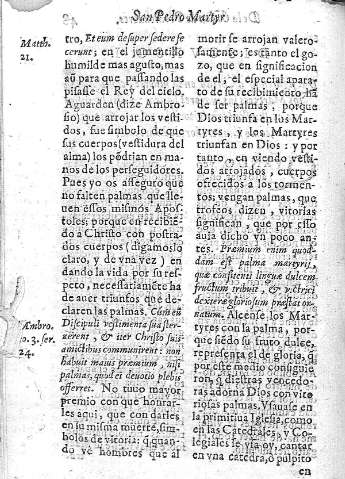 San Pedro Martyr.
Math.
21.
Ambro.
to. 3. ser.
24.
tro, Et eum desuper sedere fe
cerunt; en el jomentillo
humilde mas agusto, mas
aũ para que passando las
pisasse el Rey del cielo.
Aguarden (dize Ambro-
sio) que arrojar los vesti-
dos, fue simbolo de que
sus cuerpos (vestidura del
alma) los põdrian en ma-
nos de los perseguidores.
Pues yo os asseguro que
no falten palmas que lle-
nen essos mismos Apos-
toles; porque en recibiẽ-
do a Christo con postra-
dos cuerpos (digamoslo
claro, y de vna vez) en
dando la vida por su res-
peto, necessariamẽte ha
de auer triunfos que de-
claren las palmas. Cùm eũ
Discipuli vestimenta sua ster-
nerent, & iter Christo suis
amictibus communirent: non
habuit maius præmium, nisi
palmas, quas ei deuota plebis
offerret. No tuuo mayor
premio con que honrar-
les aqui, que con darles
en su misma muerte, sim-
bolos de vitoria: q̃ quan-
do vè hombres que al
morir se arrojan valero-
samente; es tanto el go-
zo, que en significacion
de el, el especial apara-
to de su recibimiento hà
de ser palmas; porque
Dios triunfa en los Mar-
tyres, y los Martyres
triunfan en Dios: y por
tanto, en viendo vesti-
dos arrojados, cuerpos
ofrecidos a los tormen-
tos; vengan palmas, que
trofeos dizen, vitorias
significan, que por esso
auia dicho vn poco an-
tes. Præmium enim quod-
dam est palma martyrij,
quæ confitenti linguæ dulcem
fructum tribuit, & victrici
dexteræ gloriosum præstat or-
natum. Alcense los Mar-
tyres con la palma, por-
que siẽdo su fruto dulce,
representa el de gloria, q̃
por este medio consiguie
ron, q̃ diestras vencedo-
ras adorna Dios con vito
riosas palmas. Vsauase en
la primitiua Iglesia, como
en las Catedrales, y Co-
legiales se vsa oy, cantar
en vna catedra, ò pulpito
en